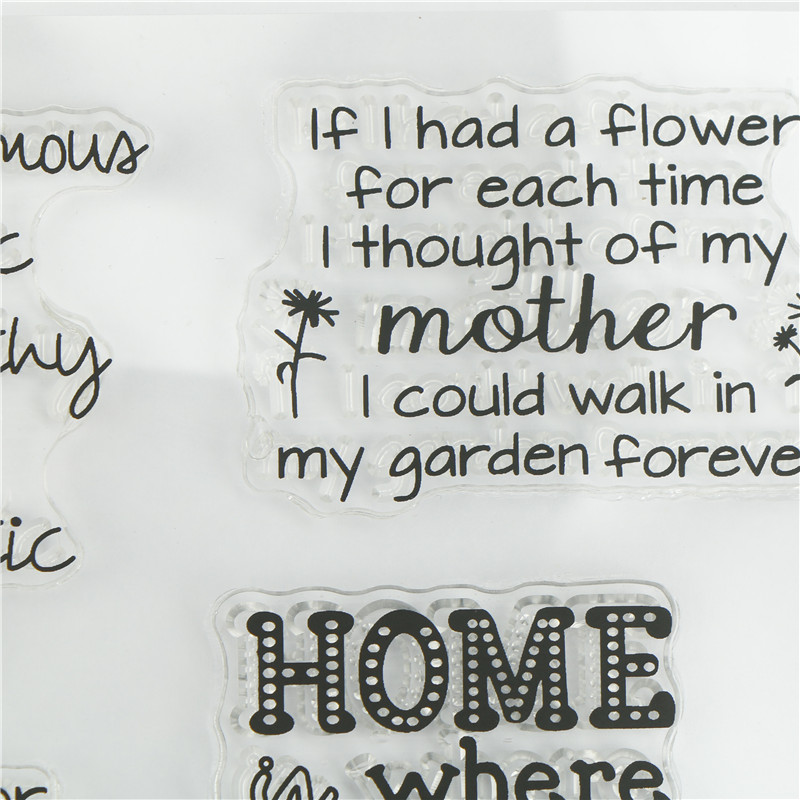 If I had a flower
for each time
I thought of my
mother
I could walk in
my garden foreve
HOME
is where